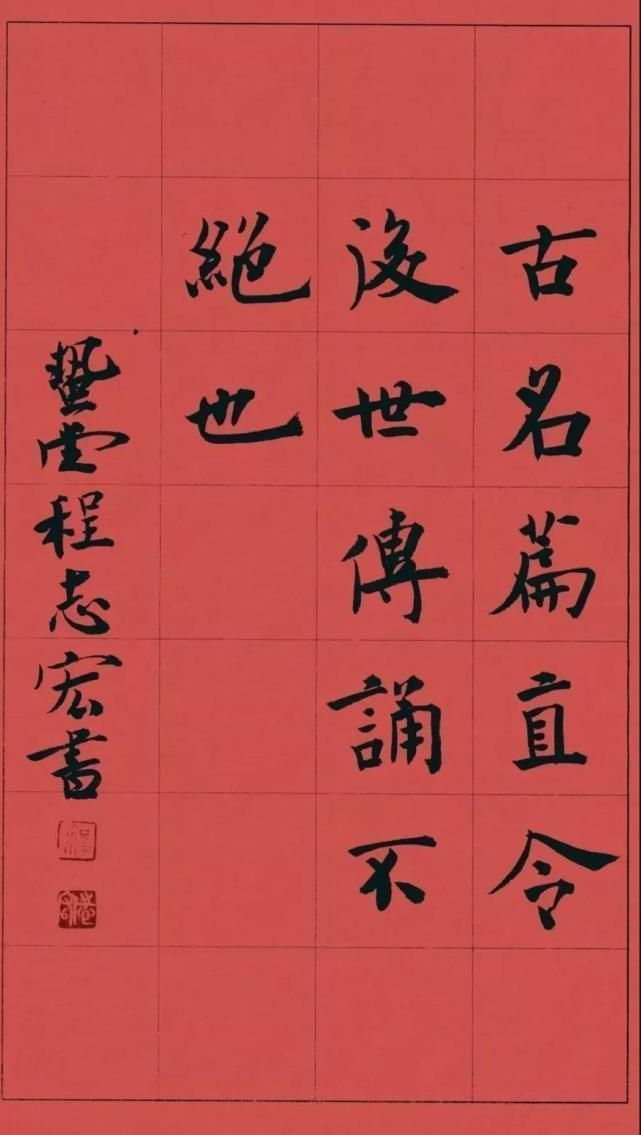 古名篇直令
後世傳誦不
絕也
蟄堂程志宏書